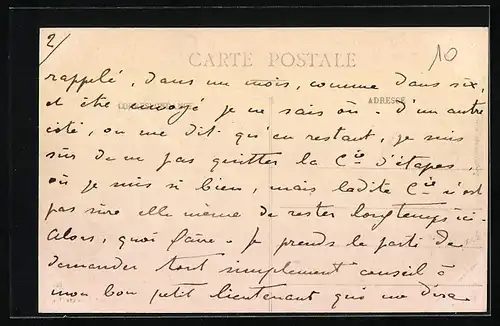 2/
CARTE POSTALE
10
rappelé, dans un mois, comme dans six,
et être envoyé je ne sais où. D'un autre
CORRESPONDANCE ADRESSE
côté, on me dit qu'en restant, je suis
sûr de ne pas quitter la Cie d'étapes,
où je suis si bien, mais ladite Cie n'est
pas sûre elle même de rester longtemps ici.
Alors, quoi faire. Je prends le parti de
demander tout simplement conseil à
mon bon petit lieutenant qui me dira